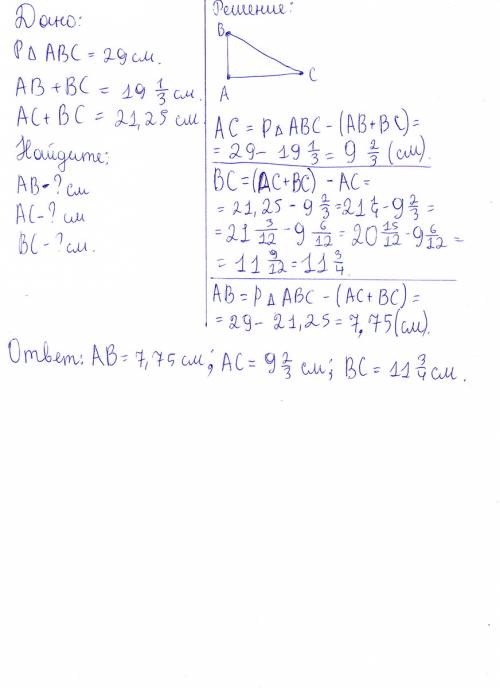 Дано:
P△ABC = 29 см.
AB + BC = 19 1/3 см.
AC + BC = 21,25 см
Найдите:
AB - ? см
AC - ? см
BC - ? см.
Решение:
B
A
C
AC = P△ABC - (AB + BC) =
= 29 - 19 1/3 = 9 2/3 (см).
BC = (AC + BC) - AC =
= 21,25 - 9 2/3 = 21 1/4 - 9 2/3 =
= 21 3/12 - 9 6/12 = 20 15/12 - 9 6/12 =
= 11 9/12 = 11 3/4.
AB = P△ABC - (AC + BC) =
= 29 - 21,25 = 7,75 (см).
Ответ: AB = 7,75 см; AC = 9 2/3 см; BC = 11 3/4 см.